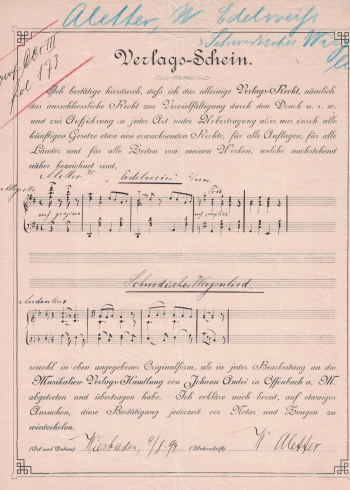 Aletter, W. Edelweiss
Schwedisches Wie
fol 173
Verlags-Schein.
Ich bestätige hierdurch, daß ich das alleinige Verlags-Recht, nämlich
das ausschliessliche Recht zur Vervielfältigung durch den Druck u. s. w.
und zur Aufführung in jeder Art unter Uebertragung aller mir durch alle
künftigen Gesetze etwa neu erwachsenden Rechte, für alle Auflagen, für alle
Länder und für alle Zeiten von meinen Werken, welche nachstehend
näher bezeichnet sind,
Aletter W. Edelweiss
Allegretto
Schwedisches Wiegenlied
Andantino
sowohl in oben angegebener Originalform, als in jeder Bearbeitung an die
Musikalien-Verlags-Handlung von Johann André in Offenbach a. M.
abgetreten und übertragen habe. Ich erkläre mich bereit, auf etwaiges
Ansuchen, diese Bestätigung jederzeit vor Notar und Zeugen zu
wiederholen.
(Ort und Datum) Wiesbaden, (Unterschrift) W Aletter